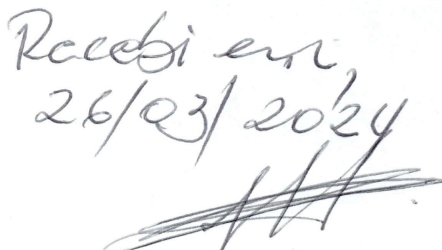 Recebi em,
26/03/2024